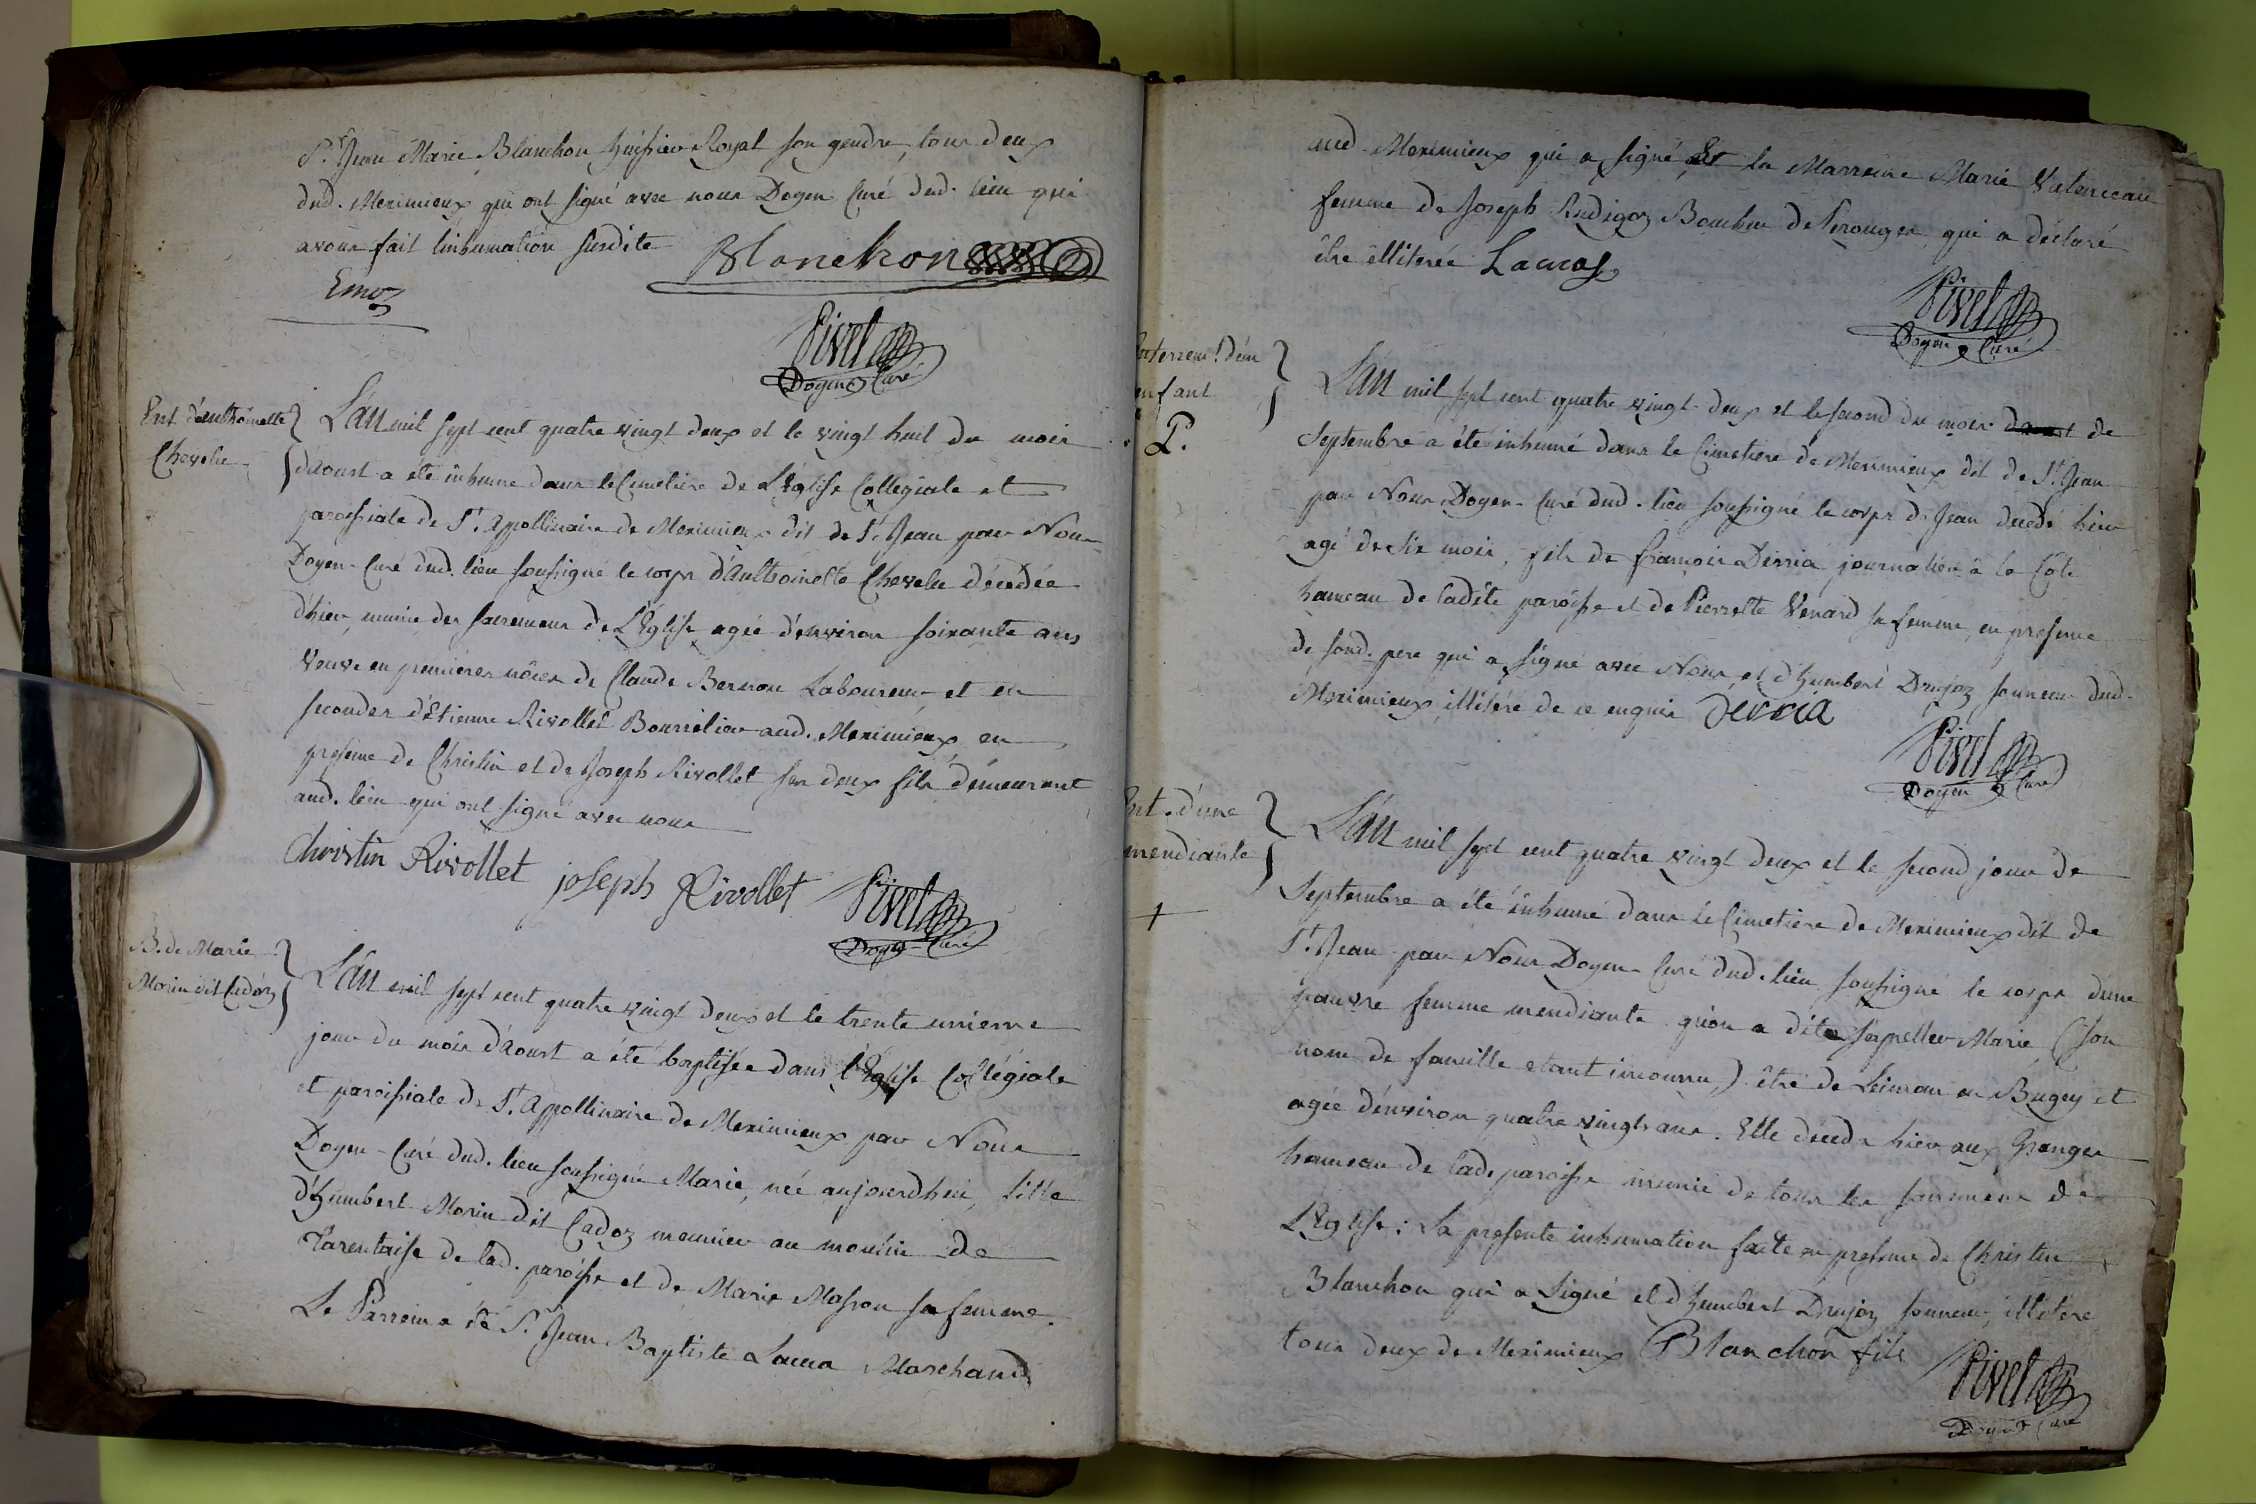 Sr. Jean Marie Blanchon huissier Royal son gendre, tous deux
dud. Meximieux qui ont signé avec nous Doyen Curé dud. lieu qui
avons fait l'inhumation susdite Blanchon
Emoz
Pivet
Doyen Curé
Ent. d'anthoinette
Chevelu
L'an mil sept cent quatre vingt deux et le vingt huit du mois
d'aoust a été inhumé dans le Cimetiere de L'Eglise Collegiale et
paroissiale de St. Appollinaire de Meximieux dit de St. Jean par Nous
Doyen-Curé dud. lieu soussigné le corps d'Anthoinette Chevelu décédée
d'hier, munie des sacremens de L'Eglise agée d'environ soixante ans
Veuve en premières nôces de Claude Bernou Laboureur, et en
secondes d'Etienne Rivollet Bourrelier aud. Meximieux en
presence de Christin et de Joseph Rivollet ses deux fils demeurant
aud. lieu qui ont signé avec nous
Christin Rivollet joseph Rivollet Pivet
Doyen-Curé
B. de Marie
Morin dit Cadoz
L'an mil sept cent quatre vingt deux et le trente unieme
jour du mois d'Aoust a été baptisée dans l'Eglise Collégiale
et paroissiale de St. Appollinaire de Meximieux par Nous
Doyen-Curé dud. lieu soussigné Marie, née aujourdhui, fille
d'Humbert Morin dit Cadoz meunier au moulin de
Tarentaise de lad. paroisse et de Marie Masson sa femme.
Le Parrein a été Sr. Jean Baptiste Lacua Marchand
aud. Meximieux qui a signé, Et la Marreine Marie
femme de Joseph Rudigoz Boucher de Perouges qui a déclaré
être illiterée Lacuas
Pivet
Doyen Curé
Enterremt. d'un
enfant
P.
L'an mil sept cent quatre vingt deux et le second du mois de
Septembre a été inhumé dans le Cimetiere de Meximieux dit de St. Jean
par Nous Doyen-Curé dud. lieu soussigné le corps de Jean decedé hier
agé de six mois, fils de françois Derria journalier à la Côte
hameau de ladite paroisse et de Pierrette Venard sa femme, en presence
de sond. pere qui a signé avec Nous, et d'Humbert Drujoz sonneur dud.
Meximieux, illiteré de ce enquis Derria
Pivet
Doyen Curé
Ent. d'une
mendiante
+
L'an mil sept cent quatre vingt deux et le second jour de
Septembre a été inhumé dans le Cimetiere de Meximieux dit de
St. Jean par Nous Doyen-Curé dud. lieu soussigné le corps d'une
pauvre femme mendiante qu'on a dite s'appeller Marie (son
nom de famille etant inconnu,) être de en Bugey et
agée d'environ quatre vingts ans. Elle deceda hier aux Granges
hameau de lade paroisse munie de tous les sacremens de
L'Eglise: La presente inhumation faite en presence de Christin
Blanchon qui a signé et d'Humbert Drujoz sonneur, illiteré
tous deux de Meximieux Blanchon fils
Pivet
Doyen Curé